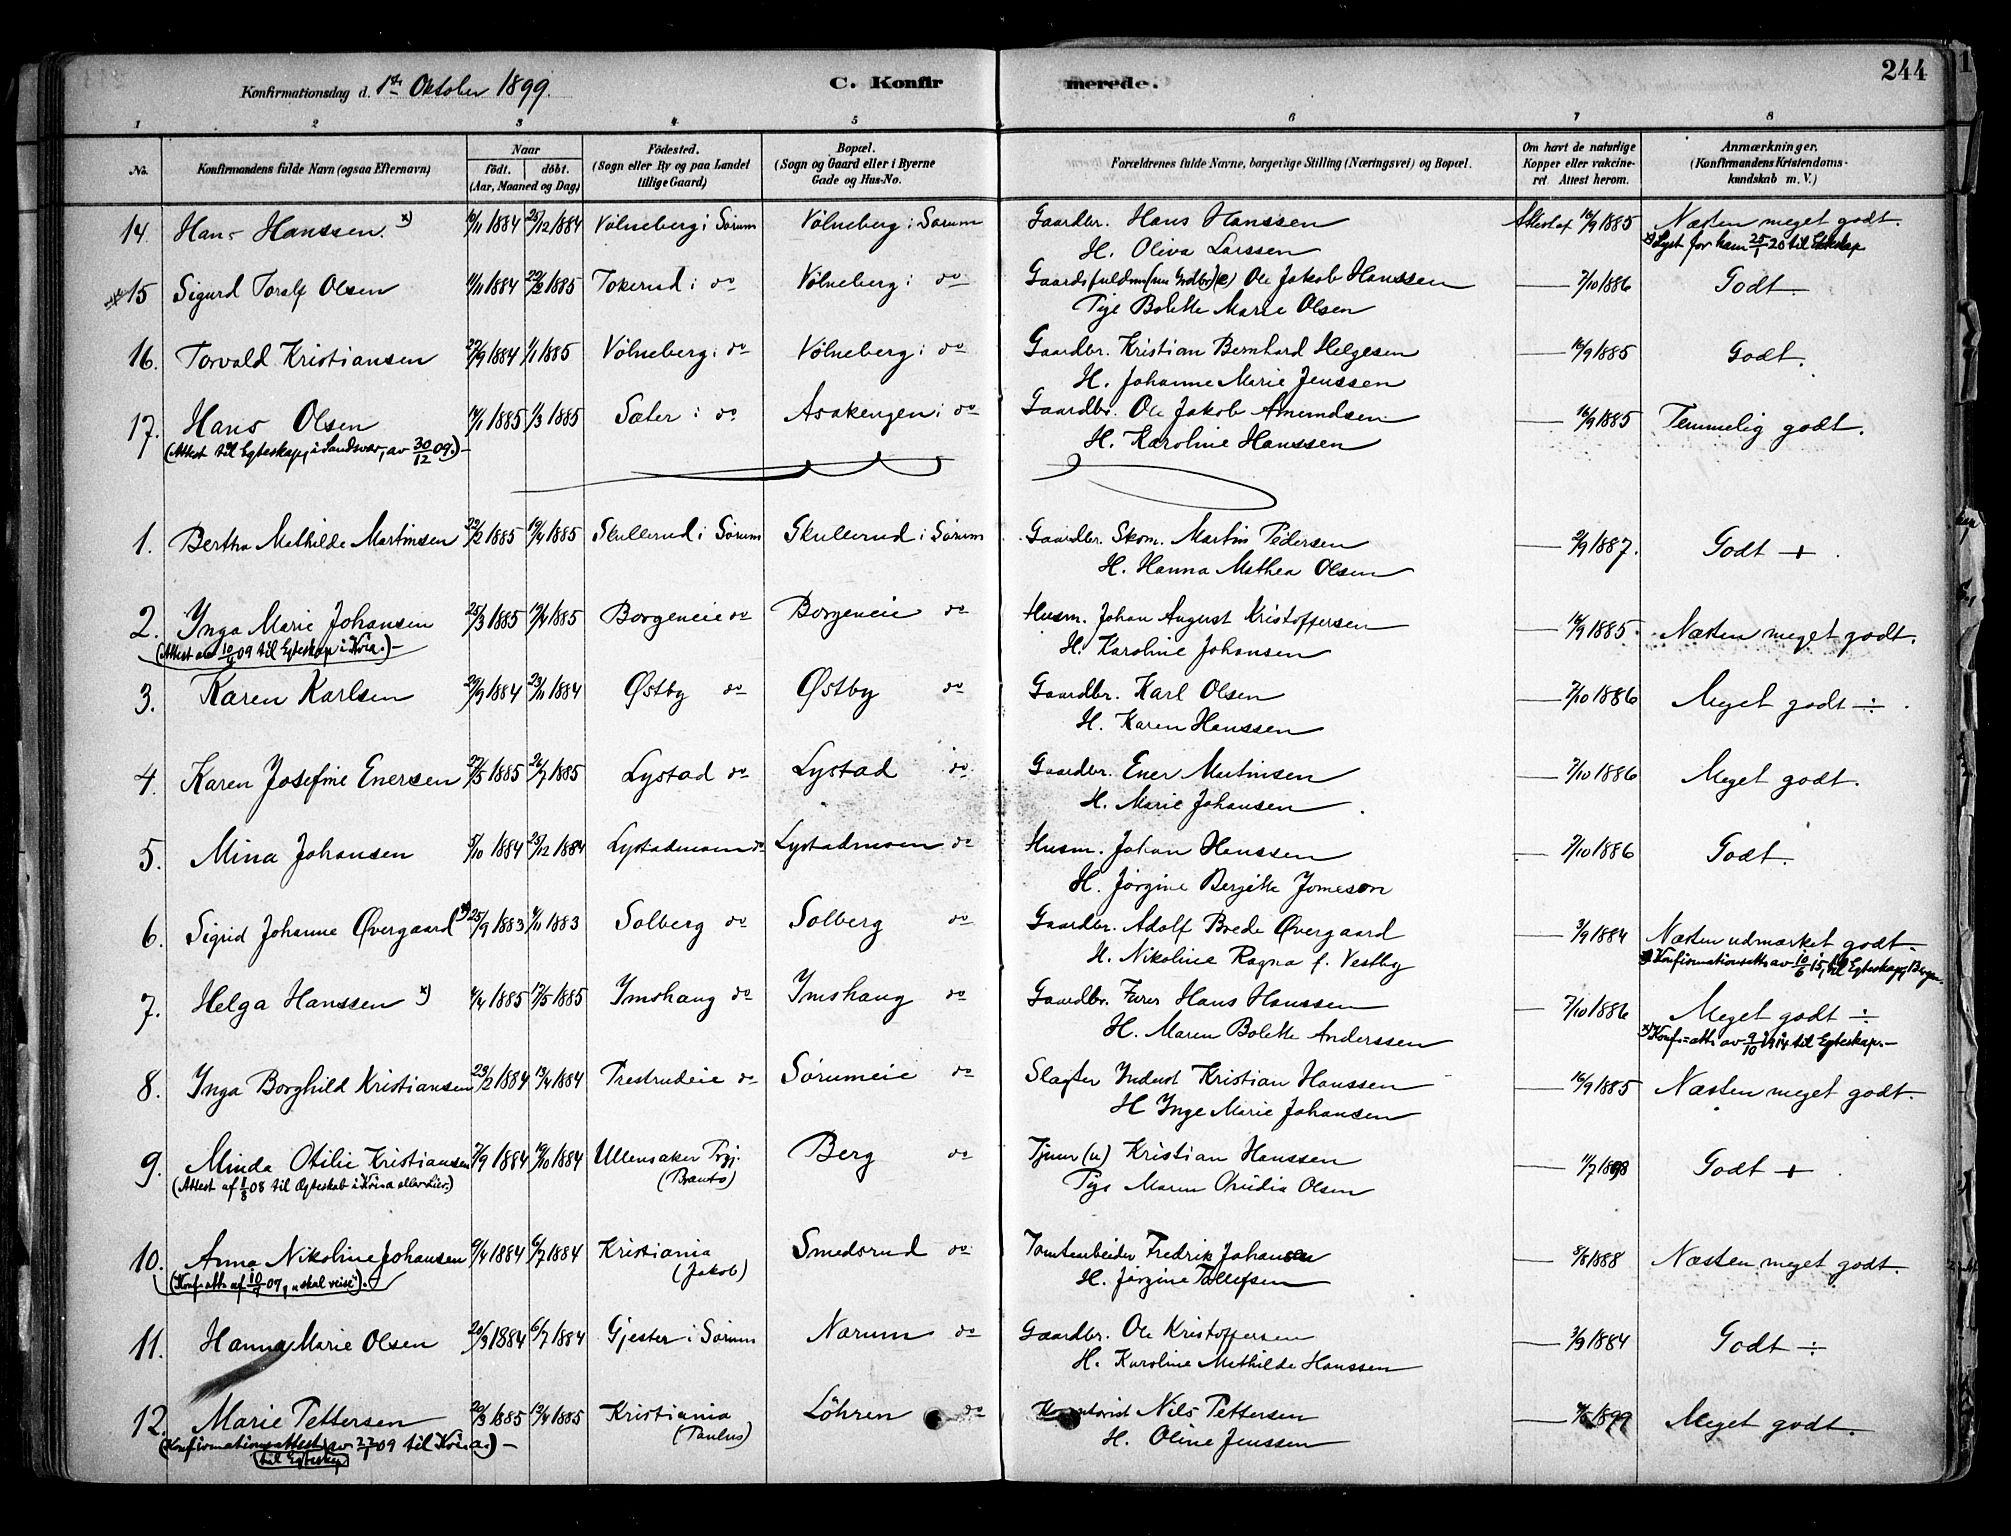 244
Konfirmationsdag d. 1ste Oktober 1899.
C. Konfirmerede.
1 2 3 4 5 6 7 8
No. | Konfirmandens fulde Navn (ogsaa Efternavn) | Naar født. døbt. (Aar, Maaned og Dag) | Fødested. (Sogn eller By og paa Landet tillige Gaard) | Bopæl. (Sogn og Gaard eller i Byerne Gade og Hus-No. | Forældrenes fulde Navne, borgerlige Stilling (Næringsvei) og Bopæl. | Om havt de naturlige Kopper eller vakcineret. Attest herom. | Anmærkninger. (Konfirmandens Kristendomskundskab m. V.)
14. Hans Hanssen. x) 16/11 1884 25/12 1884 Vølneberg i Sørum Vølneberg i Sørum Gaardbr. Hans Hanssen Attest af 16/9 1885 Næsten meget godt.
H. Oliva Larssen x) Lyst for ham 25/7 20 til Ekteskap
15 Sigurd Toralf Olsen 11/11 1884 22/2 1885 Tokerud i do Vølneberg i do Ole Jakob Hanssen — 7/10 1886 Godt.
Pige Bolette Marie Olsen
16. Torvald Kristiansen 22/9 1884 1/1 1885 Vølneberg i do Vølneberg i do Gaardbr. Kristian Bernhard Helgesen — 16/9 1885 Godt.
H. Johanne Marie Jenssen
17. Hans Olsen 1885 1/3 1885 Sæter i do Asakengen i do Gaardbr. Ole Jakob Amundsen — 16/9 1885 Temmelig godt.
(Attest til Egteskap, i Sandsvær, av 30/12 09.) – H. Karoline Hanssen
1. Bertha Mathilde Martinsen 22/2 1885 19/4 1885 Skullerud i Sørum Skullerud i Sørum Gaardbr. Skom. Martin Pedersen — 2/9 1887. Godt +
H. Hanna Mathea Olsen
2. Inga Marie Johansen 25/3 1885 19/4 1885 Borgeneie do Borgeneie do Husm. Johan August Kristoffersen — 16/9 1885. Næsten meget godt.
(Attest av 10/4 09 til Egteskap i Kr.ia.) – H. Karoline Johansen
3. Karen Karlsen 1884 23/11 1884 Østby do Østby do Gaardbr. Karl Olsen — 7/10 1886 Meget godt ÷
H. Karen Hanssen
4. Karen Josefine Enersen 27/5 1885 26/7 1885 Lystad do Lystad do Gaardbr. Ener Martinsen — 7/10 1886 Meget godt.
H. Marie Johansen
5. Mina Johansen 5/10 1884 25/12 1884 Lystadmoen do Lystadmoen do Husm. Johan Hanssen — 7/10 1886 Godt.
H. Jørgine Bergitte
6. Sigrid Johanne Øvergaard x) 25/9 1883 1883 Solberg do Solberg do Gaardbr. Adolf Brede Øvergaard — 3/9 1884 Næsten udmærket godt.
H. Nikoline Ragna f. Vestby x) Konfirmationsatt. av 10/6 15, til Egteskap, Bergen.
7. Helga Hanssen x) 4/4 1885 17/5 1885 Imshaug do Imshaug do Gaardbr. Hans Hanssen — 7/10 1886 Meget godt ÷
H. Maren Bolette Anderssen x) Konf.-att. av 9/10 1914 til Egteskap. –
8. Inga Borghild Kristiansen 23/2 1884 13/4 1884 Prestrudeie do Sørumeie do Slagter Kristian Hanssen — 16/9 1885 Næsten meget godt.
H Inge Marie Johansen
9. Minda Otilie Kristiansen 7/9 1884 19/10 1884 Ullensaker Prgj. Berg do Kristian Hanssen — Godt +
(Attest af 1/8 08 til Ægteskab i Kr.ia eller her.) Maren Olsen
10. Anna Nikoline Johansen 9/4 1884 6/7 1884 Kristiania Smedsrud do Tomtearbeider Fredrik Johansen — 8/8 1888 Næsten meget godt.
(Konf-att. af 07, "skal reise"). – (Jakob) H. Jørgine Tollefsen
11. Hanna Marie Olsen 1884 6/7 1884 Gjester i Sørum Norum do Gaardbr. Ole Kristoffersen — 3/9 1884 Godt ÷
H. Karoline Mathilde Hanssen
12. Marie Pettersen 20/3 1885 19/4 1885 Kristiania Løhren do Kontorist Nils Pettersen — 1899 Meget godt.
(Konfirmationsattest av 09 til Kr.ia.) – (Paulus) H. Oline Jenssen
til Egteskap